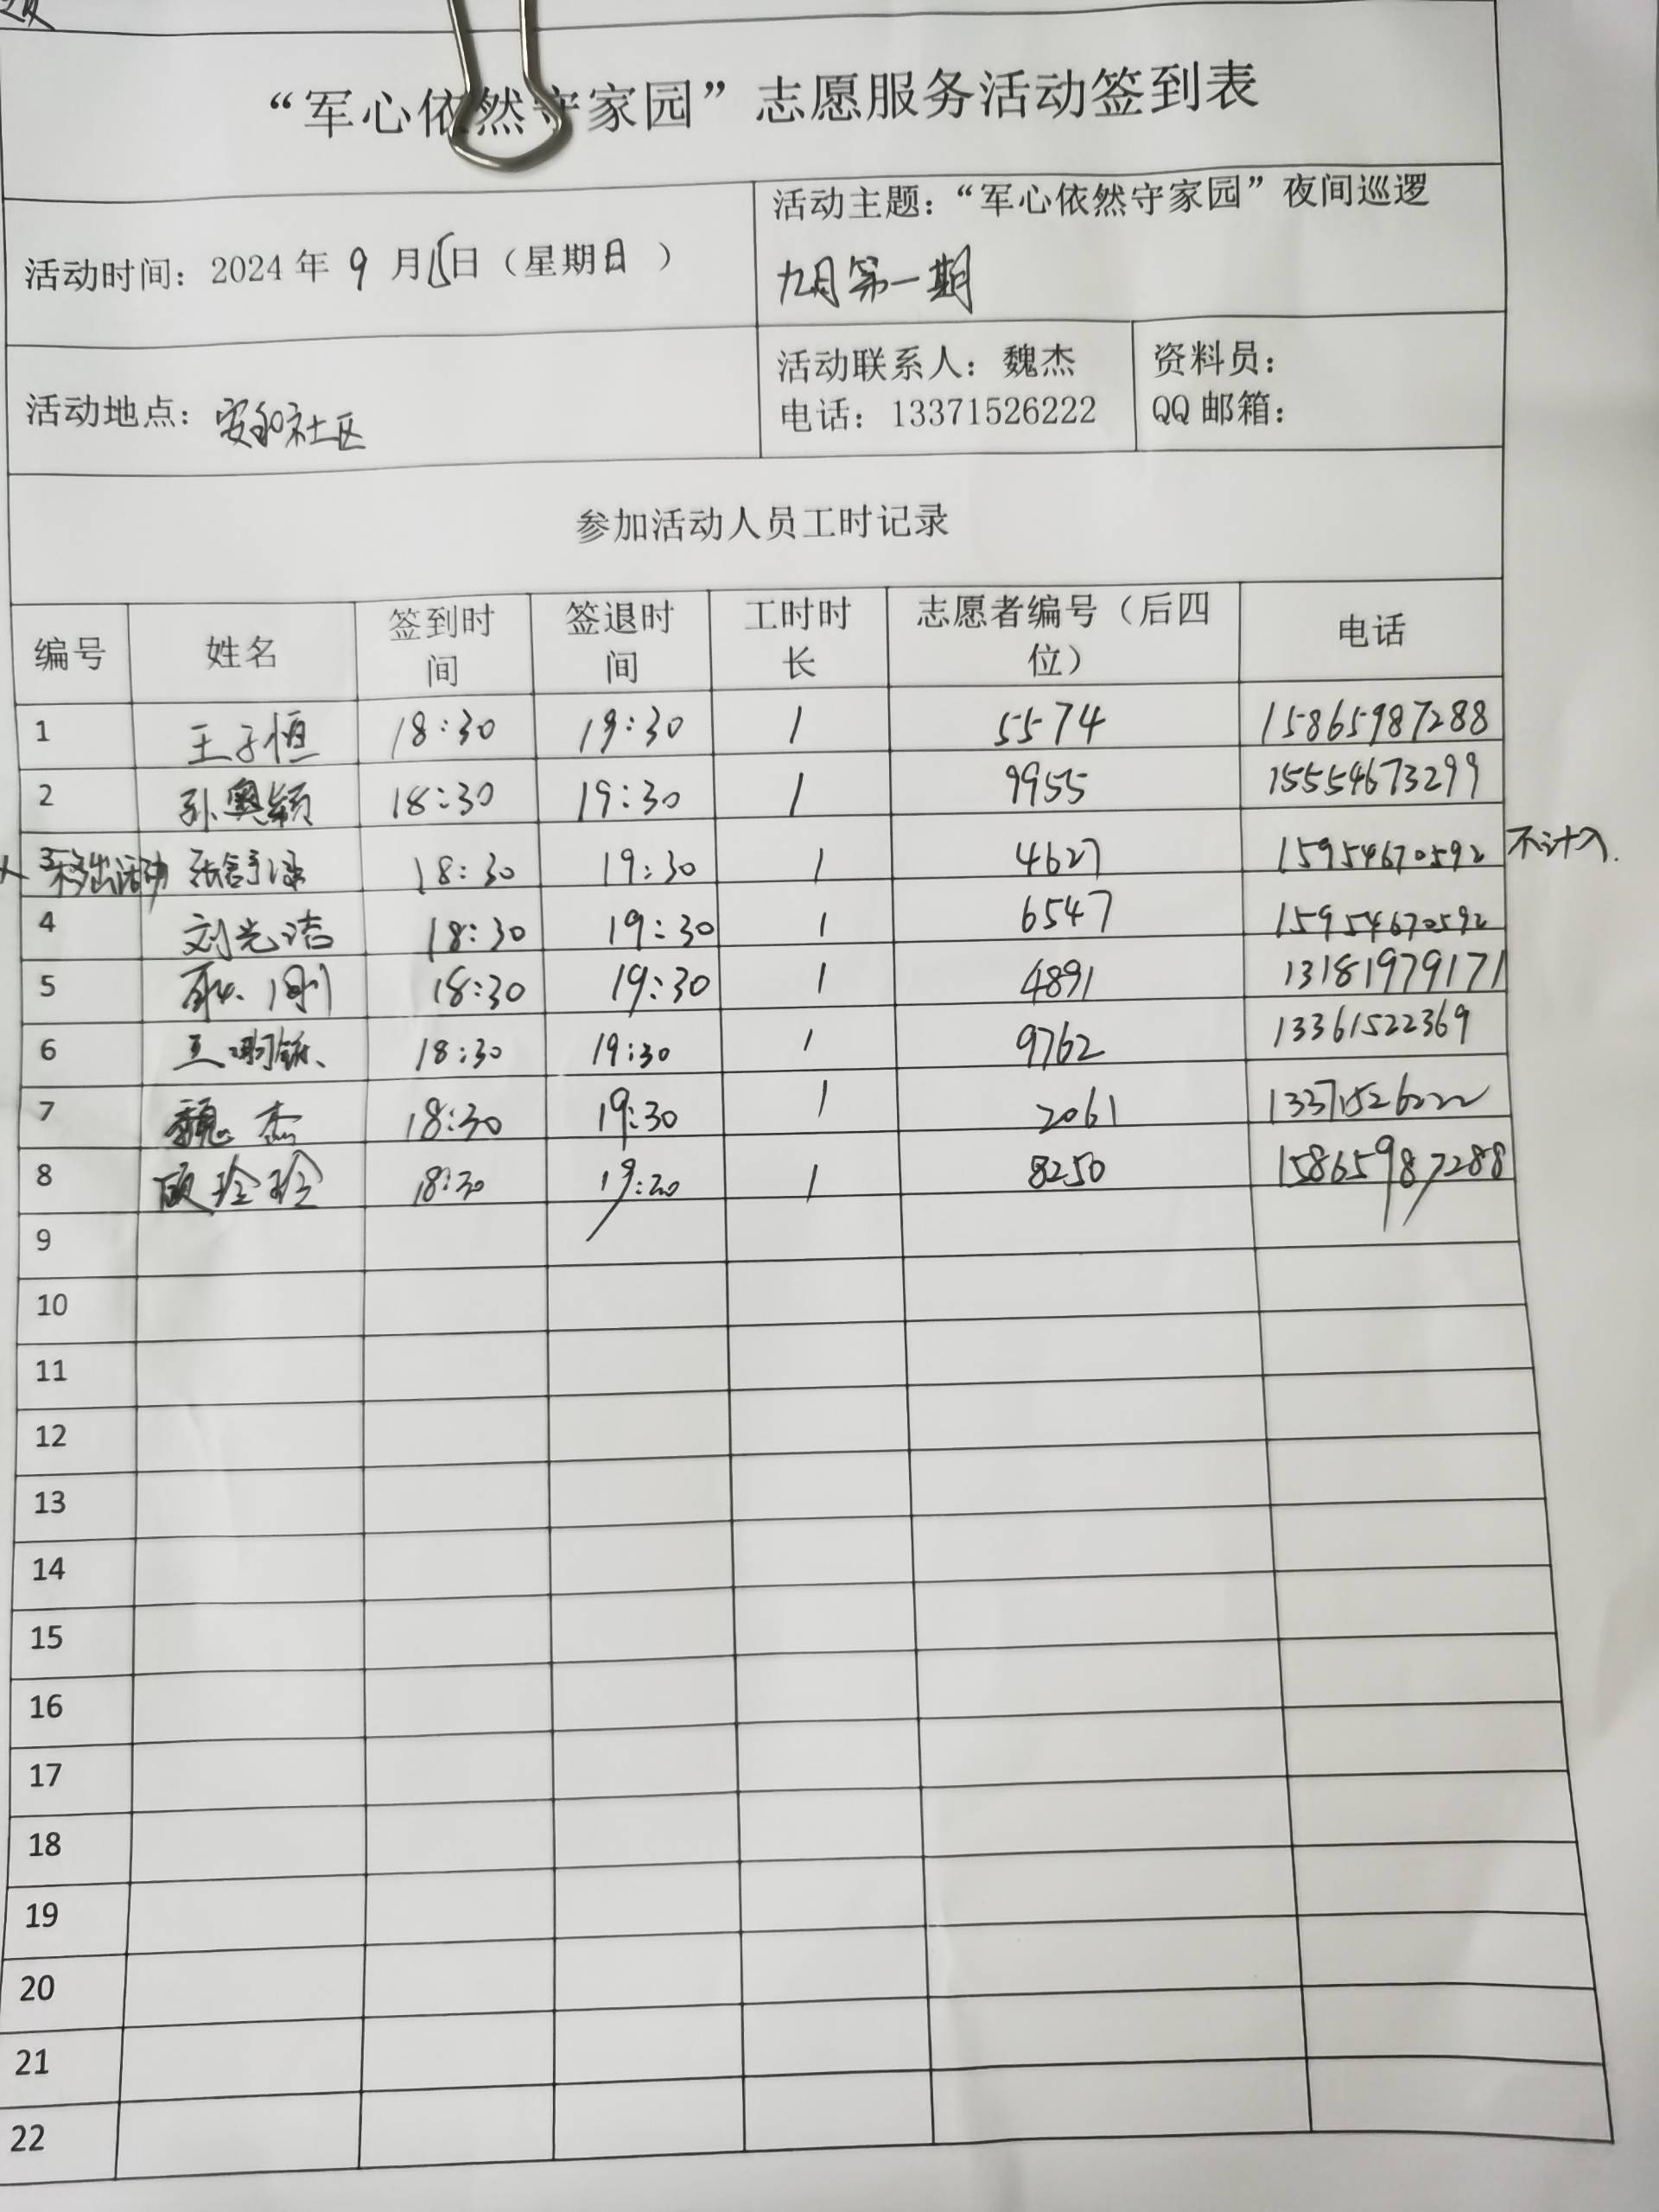 “军心依然守家园”志愿服务活动签到表
活动时间：2024年 9 月15日（星期日 ）
活动主题：“军心依然守家园”夜间巡逻
九月第一期
活动地点：安和社区
活动联系人：魏杰
电话：13371526222
资料员：
QQ邮箱：
参加活动人员工时记录
编号 姓名 签到时间 签退时间 工时时长 志愿者编号（后四位） 电话
1 王子恒 18:30 19:30 1 5574 15865987288
2 孙奥颖 18:30 19:30 1 9955 15554673299
3 移出活动 张 18:30 19:30 1 4627 15954670592 不计入
4 刘光洁 18:30 19:30 1 6547 15954670592
5 18:30 19:30 1 4891 13181979171
6 18:30 19:30 1 9762 13361522369
7 魏杰 18:30 19:30 1 2061 13371526222
8 顾玲玲 18:30 19:30 1 8250 15865987288
9
10
11
12
13
14
15
16
17
18
19
20
21
22